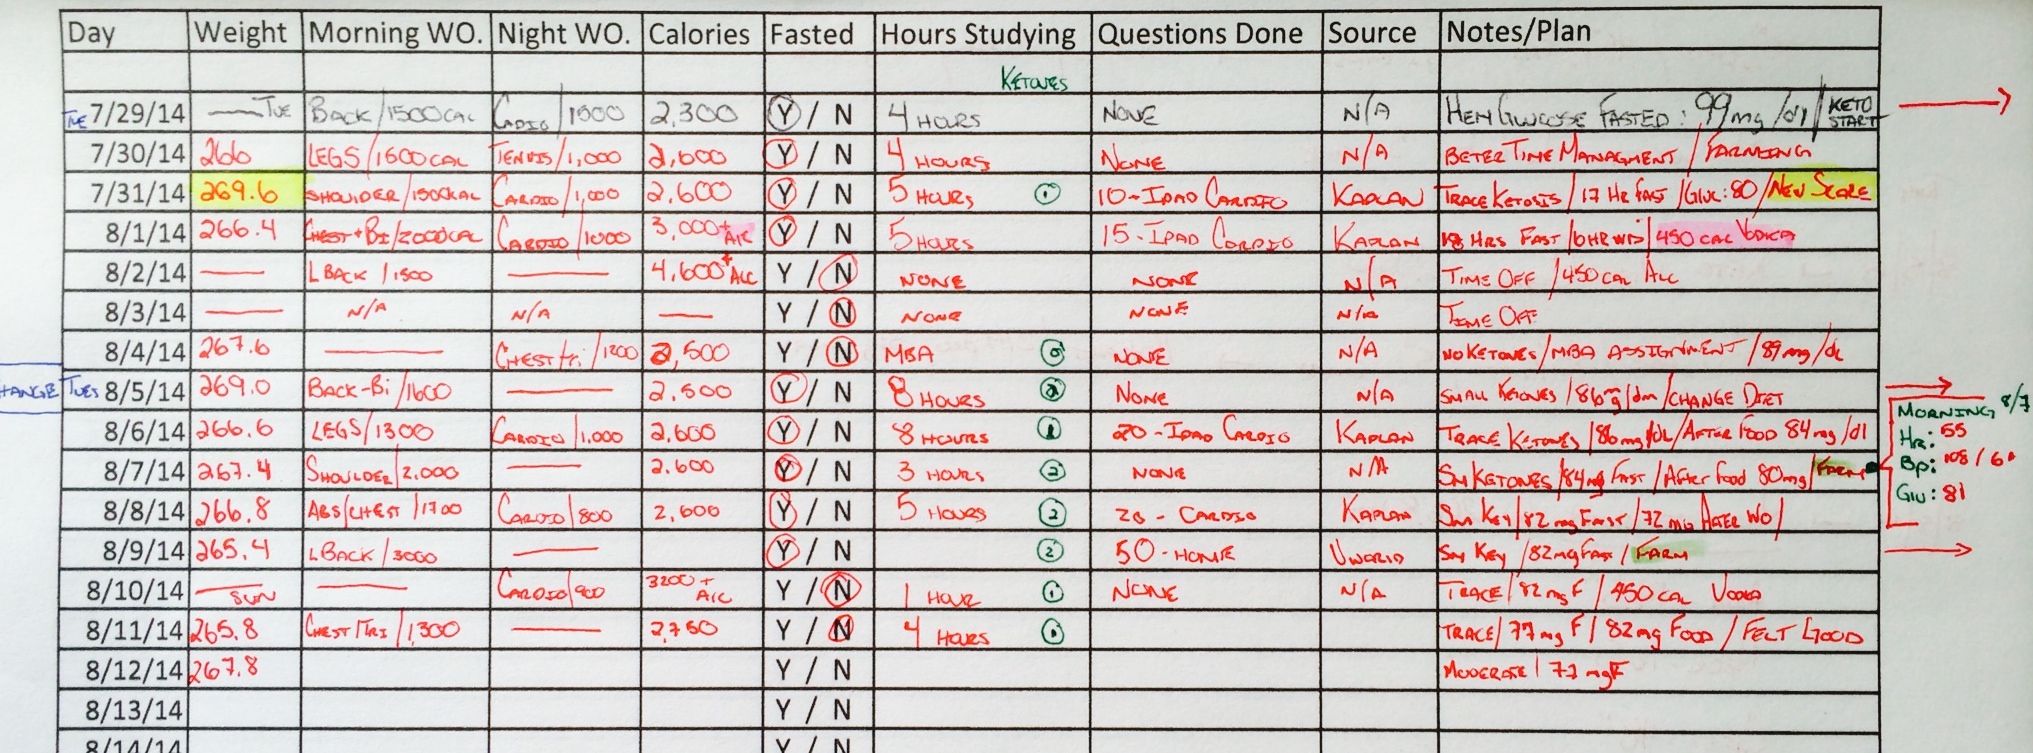 Day Weight Morning WO. Night WO. Calories Fasted Hours Studying Questions Done Source Notes/Plan
KETONES
TUE 7/29/14 — TUE BACK/1500CAL CADIO/1000 2,300 Y / N 4 HOURS NONE N/A HEM GLUCOSE FASTED: 99mg/dl/ KETO START
7/30/14 266 LEGS/1600CAL TENNIS/1,000 2,600 Y / N 4 HOURS NONE N/A BETER TIME MANAGMENT / FARMING
7/31/14 269.6 SHOULDER/1500KAL CARDIO/1,000 2,600 Y / N 5 HOURS 1 10-IPAD CARDIO KAPLAN TRACE KETOSIS/17 HR FAST/GLUC:80/NEW SCALE
8/1/14 266.4 CHEST+BI/2000CAL CARDIO/1000 3,000+ Alc Y / N 5 HOURS 15-IPAD CARDIO KAPLAN 18 HRS FAST/ 450 CAL VODKA
8/2/14 — LBACK/1500 — 4,600+ ALC Y / N NONE NONE N/A TIME OFF /450 CAL ALC
8/3/14 — N/A N/A — Y / N NONE NONE N/A TIME OFF
8/4/14 267.6 — CHEST tri/1200 2,500 Y / N MBA 0 NONE N/A NO KETONES/MBA ASSIGNMENT/89mg/dL
HANGE TUES 8/5/14 269.0 BACK-Bi/1600 — 2,500 Y / N 8 HOURS 2 NONE N/A SMALL KETONES/86g/dm/CHANGE DIET
8/6/14 266.6 LEGS/1300 CARDIO/1,000 2,600 Y / N 8 HOURS 1 20-IPAD CARDIO KAPLAN TRACE KETONES/86mg/dL/AFTER FOOD 84mg/dl
8/7/14 267.4 SHOULDER/2,000 — 2,600 Y / N 3 HOURS 2 NONE N/A SM KETONES/84mg FAST/AFTER FOOD 80mg/FARM
8/8/14 266.8 ABS/CHEST/1700 CARDIO/800 2,600 Y / N 5 HOURS 2 20-CARDIO KAPLAN SM KEY/82mg FAST/72 MG AFTER WO/
8/9/14 265.4 LBACK/3000 — Y / N 2 50-HOME UWORLD SM KEY/82mg FAST/FARM
8/10/14 — SUN — CARDIO/900 3200+ Alc Y / N 1 HOUR 1 NONE N/A TRACE/82mgF/450 CAL VODKA
8/11/14 265.8 CHEST/TRI/1,300 — 2,750 Y / N 4 HOURS TRACE/77mgF/82mg FOOD/FELT GOOD
8/12/14 267.8 Y / N MODERATE/77 mgF
8/13/14 Y / N
8/14/14 Y / N
MORNING 8/7
Hr: 55
Bp: 108/60
Glu: 81